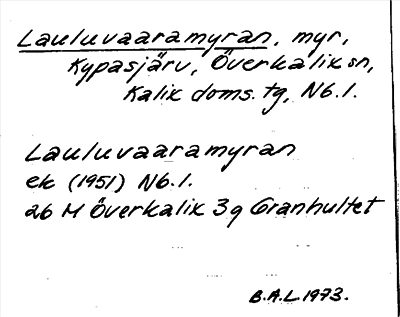 Lauluvaaramyran, myr,
Kypasjärv, Överkalix sn,
Kalix doms. tg, Nb.l.
Lauluvaaramyran
ek (1951) Nb.l.
26 M Överkalix 3g Granhultet
B.A.L 1973.